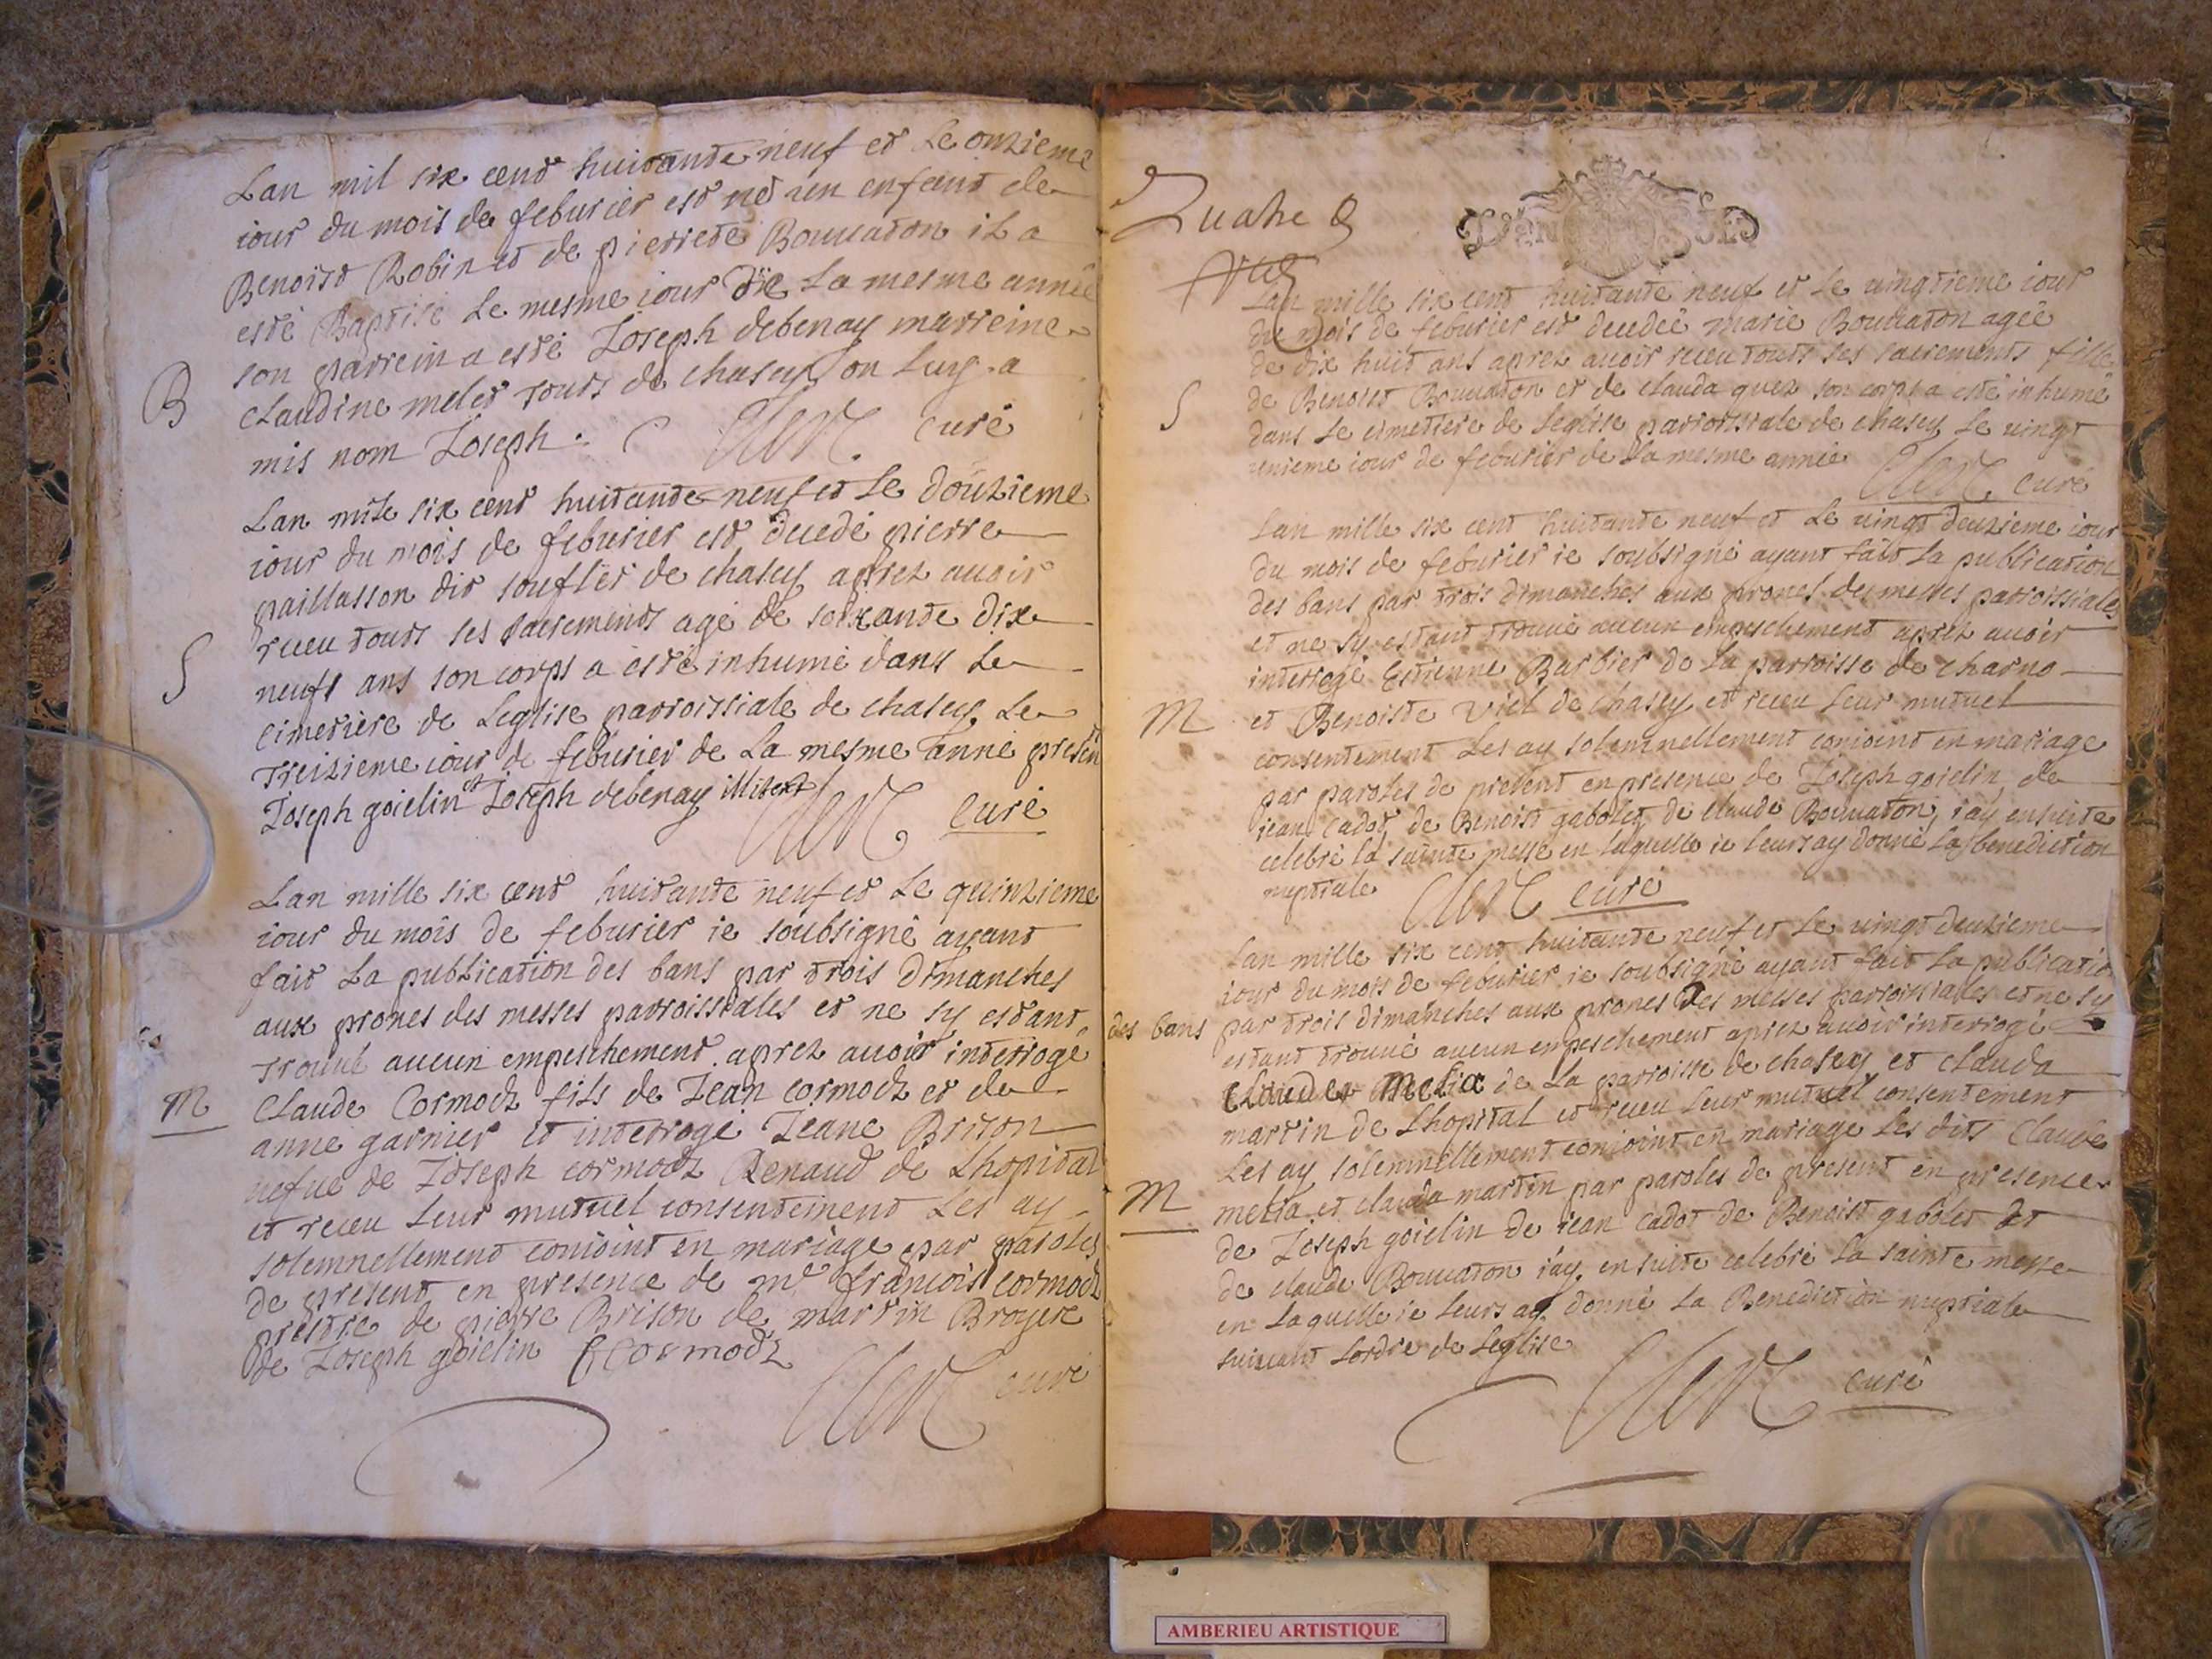 Lan mil six cent huitante neuf et Le onzieme
iour du mois de feburier est né un enfant de
Benoist Robin et de pierrete Bouuaton iL a
esté Baptisé Le mesme iour de La mesme année
son parrein a esté Ioseph debenay marreine
B
cLaudine melet touts de chasey on Luy a
mis nom Ioseph. Clerc curé
Lan mile six cent huitante neuf et Le douzieme
iour du mois de feburier est decedé pierre
paillasson dit souflet de chasey aprez auoir
receu touts ses sacrements agé de soixante dix
S
neufs ans son corps a esté inhumé dans Le
cimetiere de Leglise parroissiale de chasey Le
treizieme iour de feburier de La mesme anné presen
Ioseph goielin et Ioseph debenay illiterés Clerc Curé
Lan mille six cent huitante neuf et Le quinzieme
iour du mois de feburier ie soubsigné ayant
fait La publication des bans par trois Dimanches
aux prones des messes parroissiales et ne sy estant
trouué aucun empeschement aprez auoir interrogé
M
CLaude Cormodz fils de Iean cormodz et de
anne garnier et interrogé Ieane Brison
uefue de Ioseph cormodz Renaud de Lhopital
et receu Leur mutuel consentement Les ay
solemnellement conioint en mariage par paroles
de present en presence de mre francois cormodz
prestre de pierre Brison de martin Broyere
de Ioseph goielin F Cormodz
Clerc curé
Quatre
Lan mille six cent huitante neuf et Le uingtieme iour
du mois de feburier est decedeé marie Bouuaton ageé
de dix huit ans aprez auoir receu touts ses sacrements fille
S
de Benoist Bouuaton et de clauda quez son corps a esté inhumé
dans Le cimetiere de Leglise parroissiale de chasey Le uingt
unieme iour de feburier de La mesme année Clerc curé
Lan mille six cent huitante neuf et Le uingt deuzieme iour
du mois de feburier ie soubsigné ayant fait La publication
des bans par trois dimanches aux prones des messes parroissiales
et ne sy estant trouué aucun empeschement aprez auoir
interrogé Estienne Barbier de La parroisse de charno
M
et Benoiste Viel de chasey et receu Leur mutuel
consentement Les ay solemnellement conioint en mariage
par paroles de present en presence de Ioseph goielin, de
iean cadot, de Benoist gabolet de claude Bouuaton, iay ensuite
celebré la sainte messe en laquelle ie leurs ay donné La benediction
nuptiale Clerc curé
Lan mille six cent huitante neuf et Le uingt deuzieme
iour du mois de feburier ie soubsigné ayant fait La publicatio
des bans par trois dimanches aux prones des messes parroissiales et ne sy
estant trouué aucun enpeschement aprez auoir interrogé
claude melia de La parroisse de chasey et clauda
martin de Lhopital et receu Leur mutuel consentement
Les ay solemnellement conioint en mariage Les dits claude
M
melia et clauda martin par paroles de present en presence
de Ioseph goielin de iean cadot de Benoist gabolet et
de claude Bouuaton iay ensuite celebré La sainte messe
en Laquelle ie Leurs ay donné La Benediction nuptiale
suiuant Lordre de Leglise
Clerc curé
AMBERIEU ARTISTIQUE